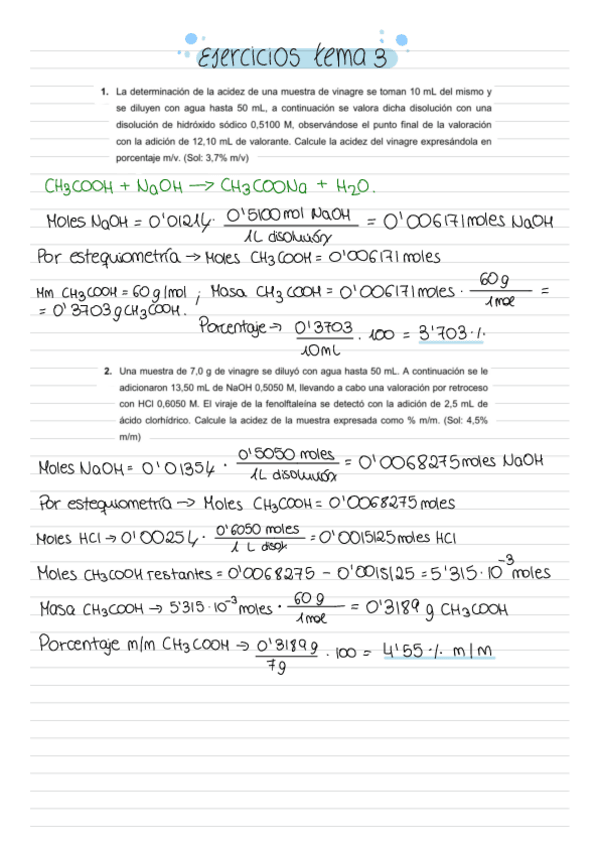 Ejercicios tema 3
1. La determinación de la acidez de una muestra de vinagre se toman 10 mL del mismo y
se diluyen con agua hasta 50 mL, a continuación se valora dicha disolución con una
disolución de hidróxido sódico 0,5100 M, observándose el punto final de la valoración
con la adición de 12,10 mL de valorante. Calcule la acidez del vinagre expresándola en
porcentaje m/v. (Sol: 3,7% m/v)
CH3COOH + NaOH → CH3COONa + H2O.
Moles NaOH = 0'0121L · 0'5100 mol NaOH / 1L disolución = 0'006171 moles NaOH
Por estequiometría → Moles CH3COOH = 0'006171 moles
Mm CH3COOH = 60 g/mol ; Masa CH3COOH = 0'006171 moles · 60 g / 1 mol =
= 0'3703 g CH3COOH.
Porcentaje → 0'3703 / 10mL · 100 = 3'703 %
2. Una muestra de 7,0 g de vinagre se diluyó con agua hasta 50 mL. A continuación se le
adicionaron 13,50 mL de NaOH 0,5050 M, llevando a cabo una valoración por retroceso
con HCl 0,6050 M. El viraje de la fenolftaleína se detectó con la adición de 2,5 mL de
ácido clorhídrico. Calcule la acidez de la muestra expresada como % m/m. (Sol: 4,5%
m/m)
Moles NaOH = 0'0135L · 0'5050 moles / 1L disolución = 0'0068275 moles NaOH
Por estequiometría → Moles CH3COOH = 0'0068275 moles
Moles HCl → 0'0025L · 0'6050 moles / 1 L disol = 0'0015125 moles HCl
Moles CH3COOH restantes = 0'0068275 - 0'0015125 = 5'315 · 10^-3 moles
Masa CH3COOH → 5'315 · 10^-3 moles · 60 g / 1 mol = 0'3189 g CH3COOH
Porcentaje m/m CH3COOH → 0'3189 g / 7g · 100 = 4'55 % m/m